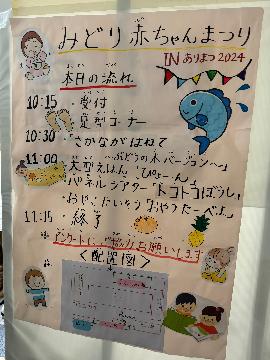 みどり赤ちゃんまつり
IN ありまつ 2024
本日の流れ
10:15 ・受付
・足型コーナー
10:30 ・さかながはねて
〜ぶどうの木バージョン〜
11:00 ・大型えほん「ぴょーん」
・パネルシアター「トコトコぼうし」
・おやこたいそう
11:15 ・終了
アンケートにご協力お願いします
<配置図>